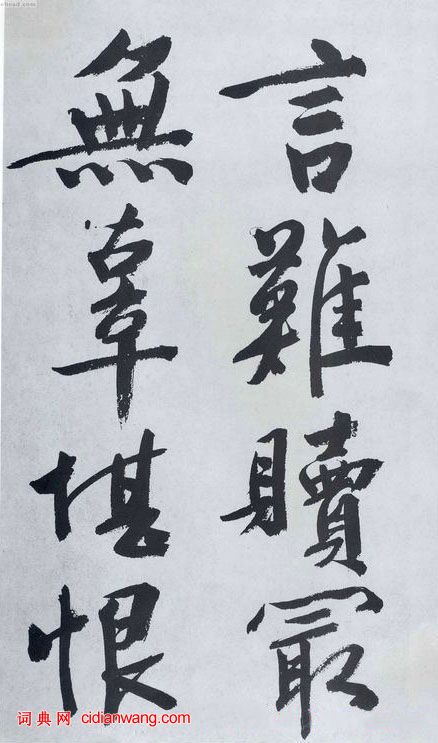 言難贖冣
無辜堪恨
词典网 cidianwang.com